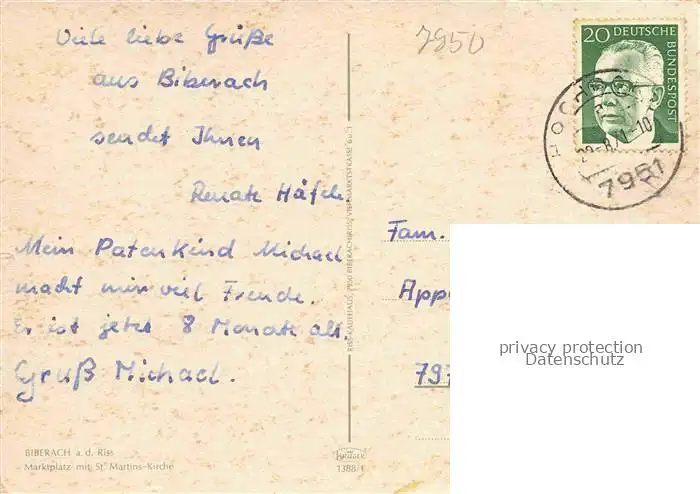 Viele liebe Grüße
aus Biberach
sendet Ihnen
Renate Häfele
Mein Patenkind Michael
macht mir viel Freude.
Er ist jetzt 8 Monate alt.
Gruß Michael.
BIBERACH a. d. Riss
Marktplatz mit St. Martins-Kirche
RISS-KAUFHAUS, 795 BIBERACH/RISS, VIEHMARKTSTRASSE
1388/1
7950
20 DEUTSCHE
BUNDESPOST
7951
Fam.
797
privacy protection
Datenschutz